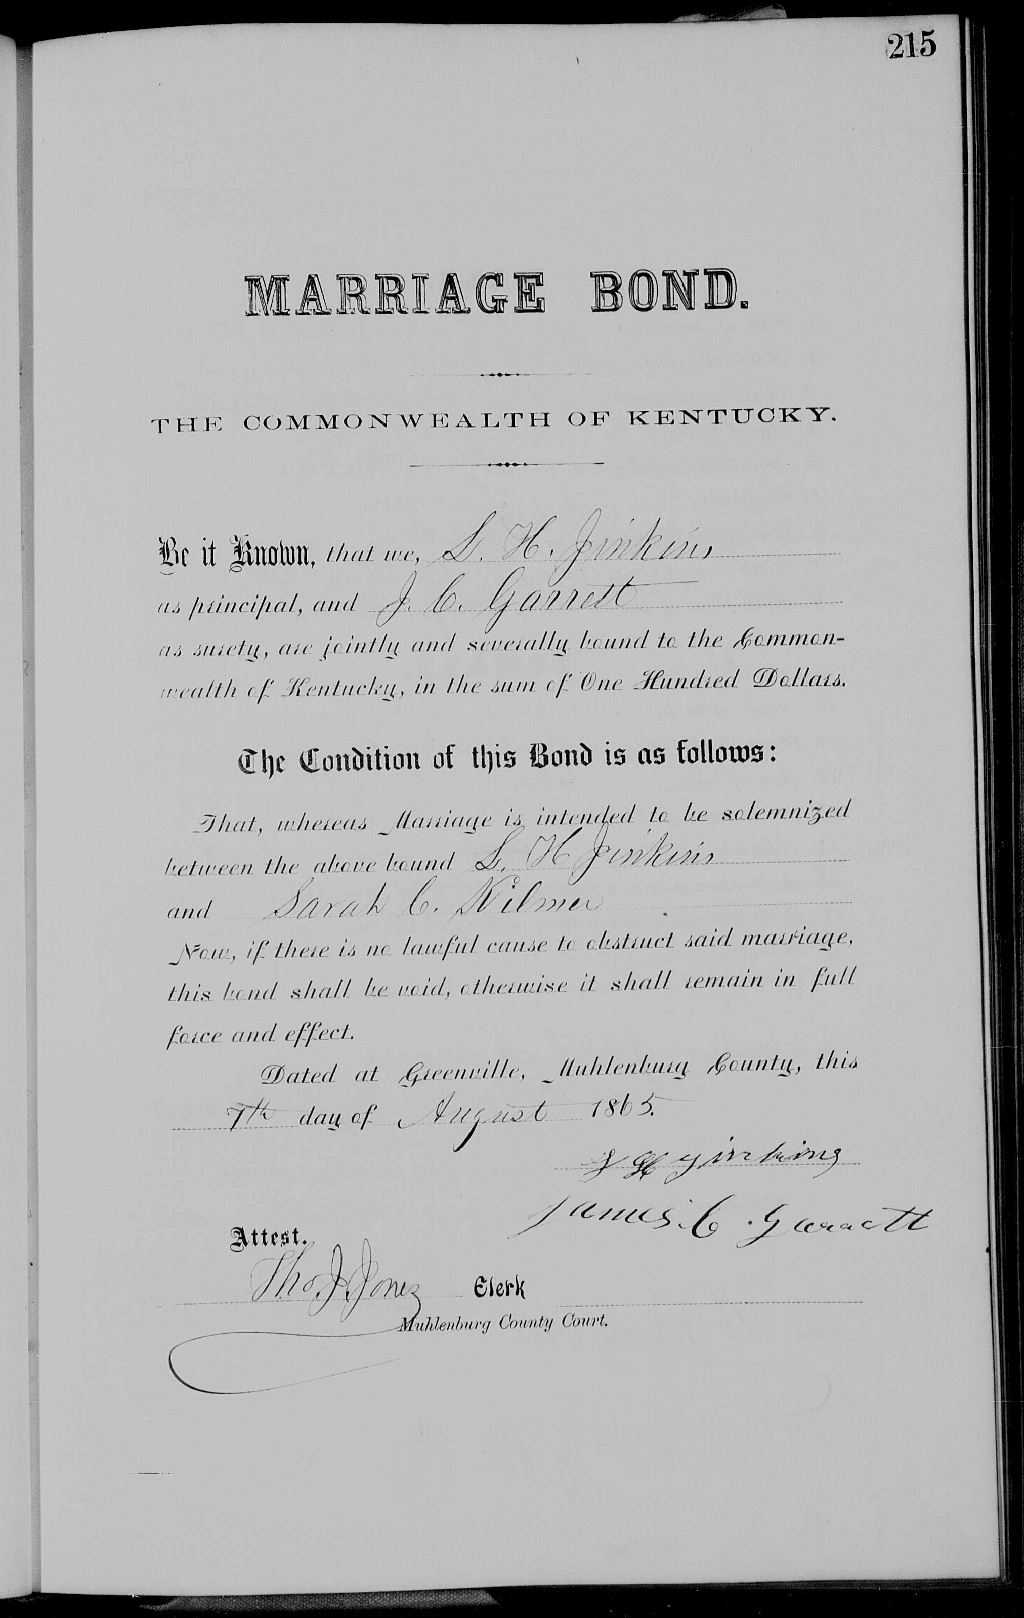 215
MARRIAGE BOND.
THE COMMONWEALTH OF KENTUCKY.
Be it Known, that we, L. H. Jinkins
as principal, and J. C. Garrett
as surety, are jointly and severally bound to the Common-
wealth of Kentucky, in the sum of One Hundred Dollars.
The Condition of this Bond is as follows:
That, whereas Marriage is intended to be solemnized
between the above bound L. H Jinkins
and Sarah C.
Now, if there is no lawful cause to obstruct said marriage,
this bond shall be void, otherwise it shall remain in full
force and effect.
Dated at Greenville, Muhlenburg County, this
7th day of August 1865.
L H Jinkins
James. C. Garrett
Attest.
Tho. J. Jones Clerk
Muhlenburg County Court.